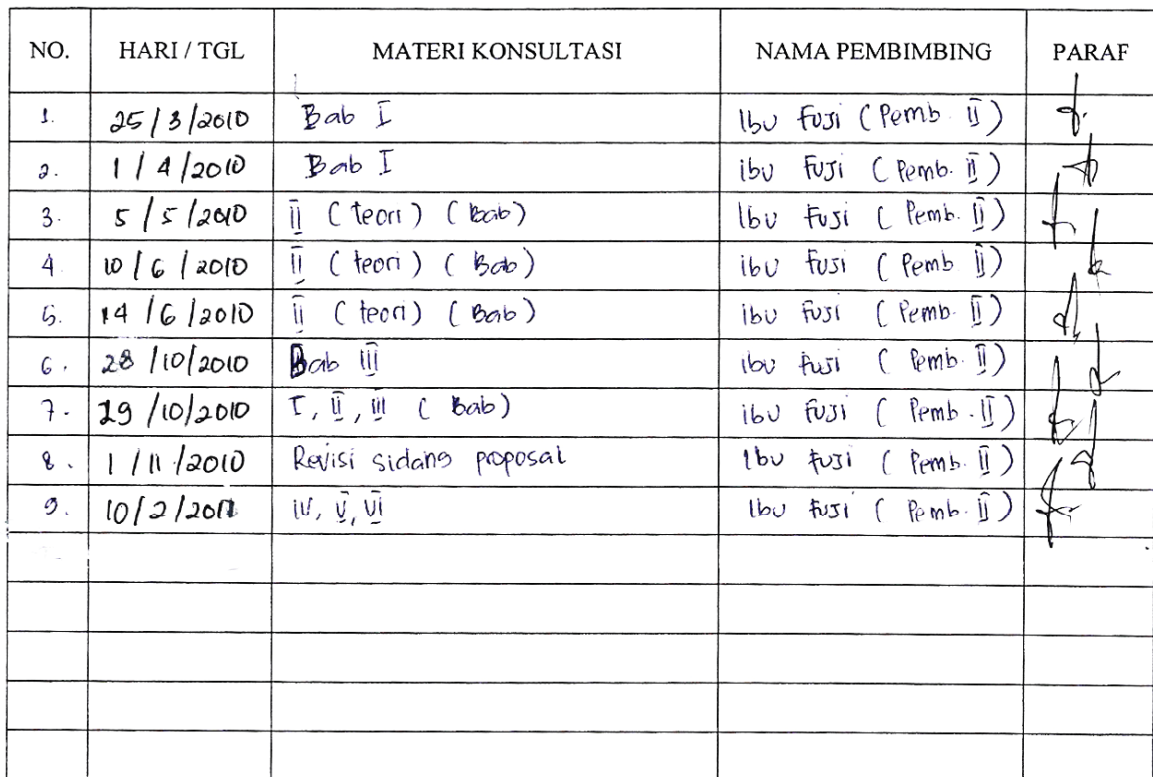 NO. HARI / TGL MATERI KONSULTASI NAMA PEMBIMBING PARAF
1. 25/3/2010 Bab I Ibu Fuji (Pemb. II)
2. 1/4/2010 Bab I ibu Fuji (Pemb. II)
3. 5/5/2010 II (teori) (Bab) Ibu Fuji (Pemb. II)
4. 10/6/2010 II (teori) (Bab) ibu Fuji (Pemb II)
5. 14/6/2010 II (teori) (Bab) ibu Fuji (Pemb. II)
6. 28/10/2010 Bab III ibu Fuji (Pemb. II)
7. 29/10/2010 I, II, III (Bab) ibu Fuji (Pemb. II)
8. 1/11/2010 Revisi sidang proposal Ibu Fuji (Pemb. II)
9. 10/2/2011 IV, V, VI Ibu Fuji (Pemb. II)